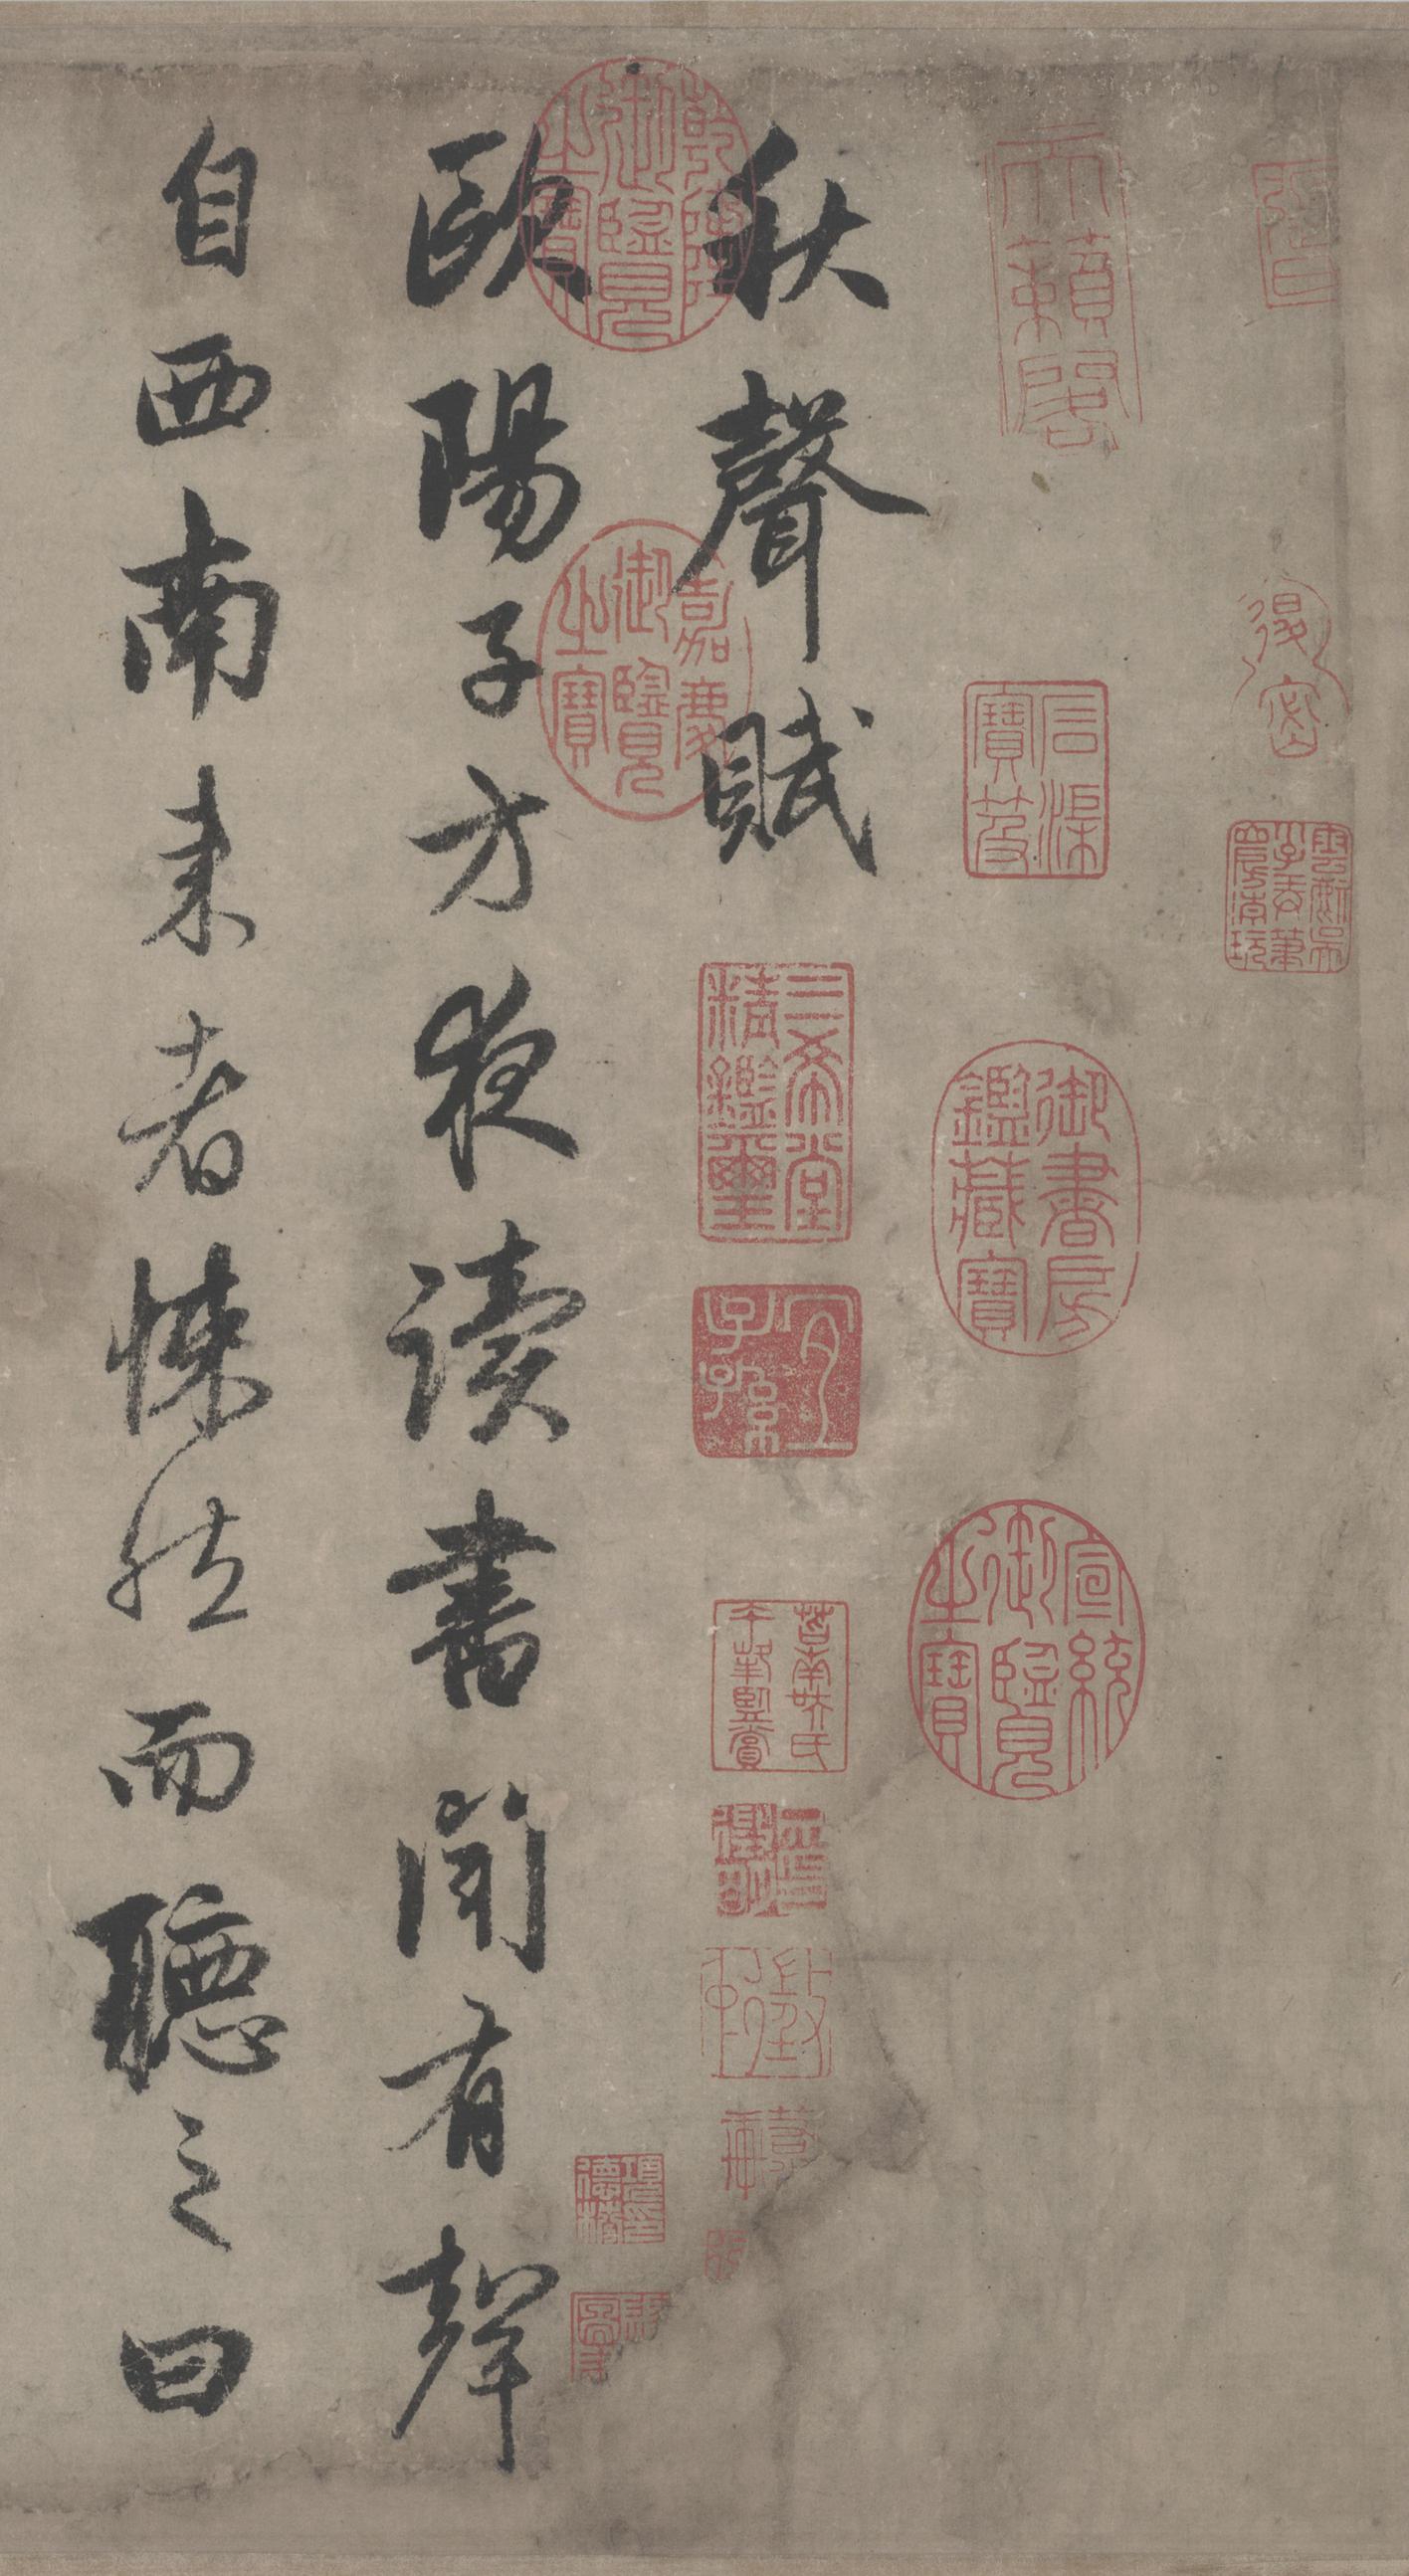 天籟閣
石渠寶笈
御書房鑑藏寶
宣統御覽之寶
秋聲賦
乾隆御覽之寶
嘉慶御覽之寶
三希堂精鑑璽
宜子孫
歐陽子方夜讀書聞有聲
自西南來者悚然而聽之曰